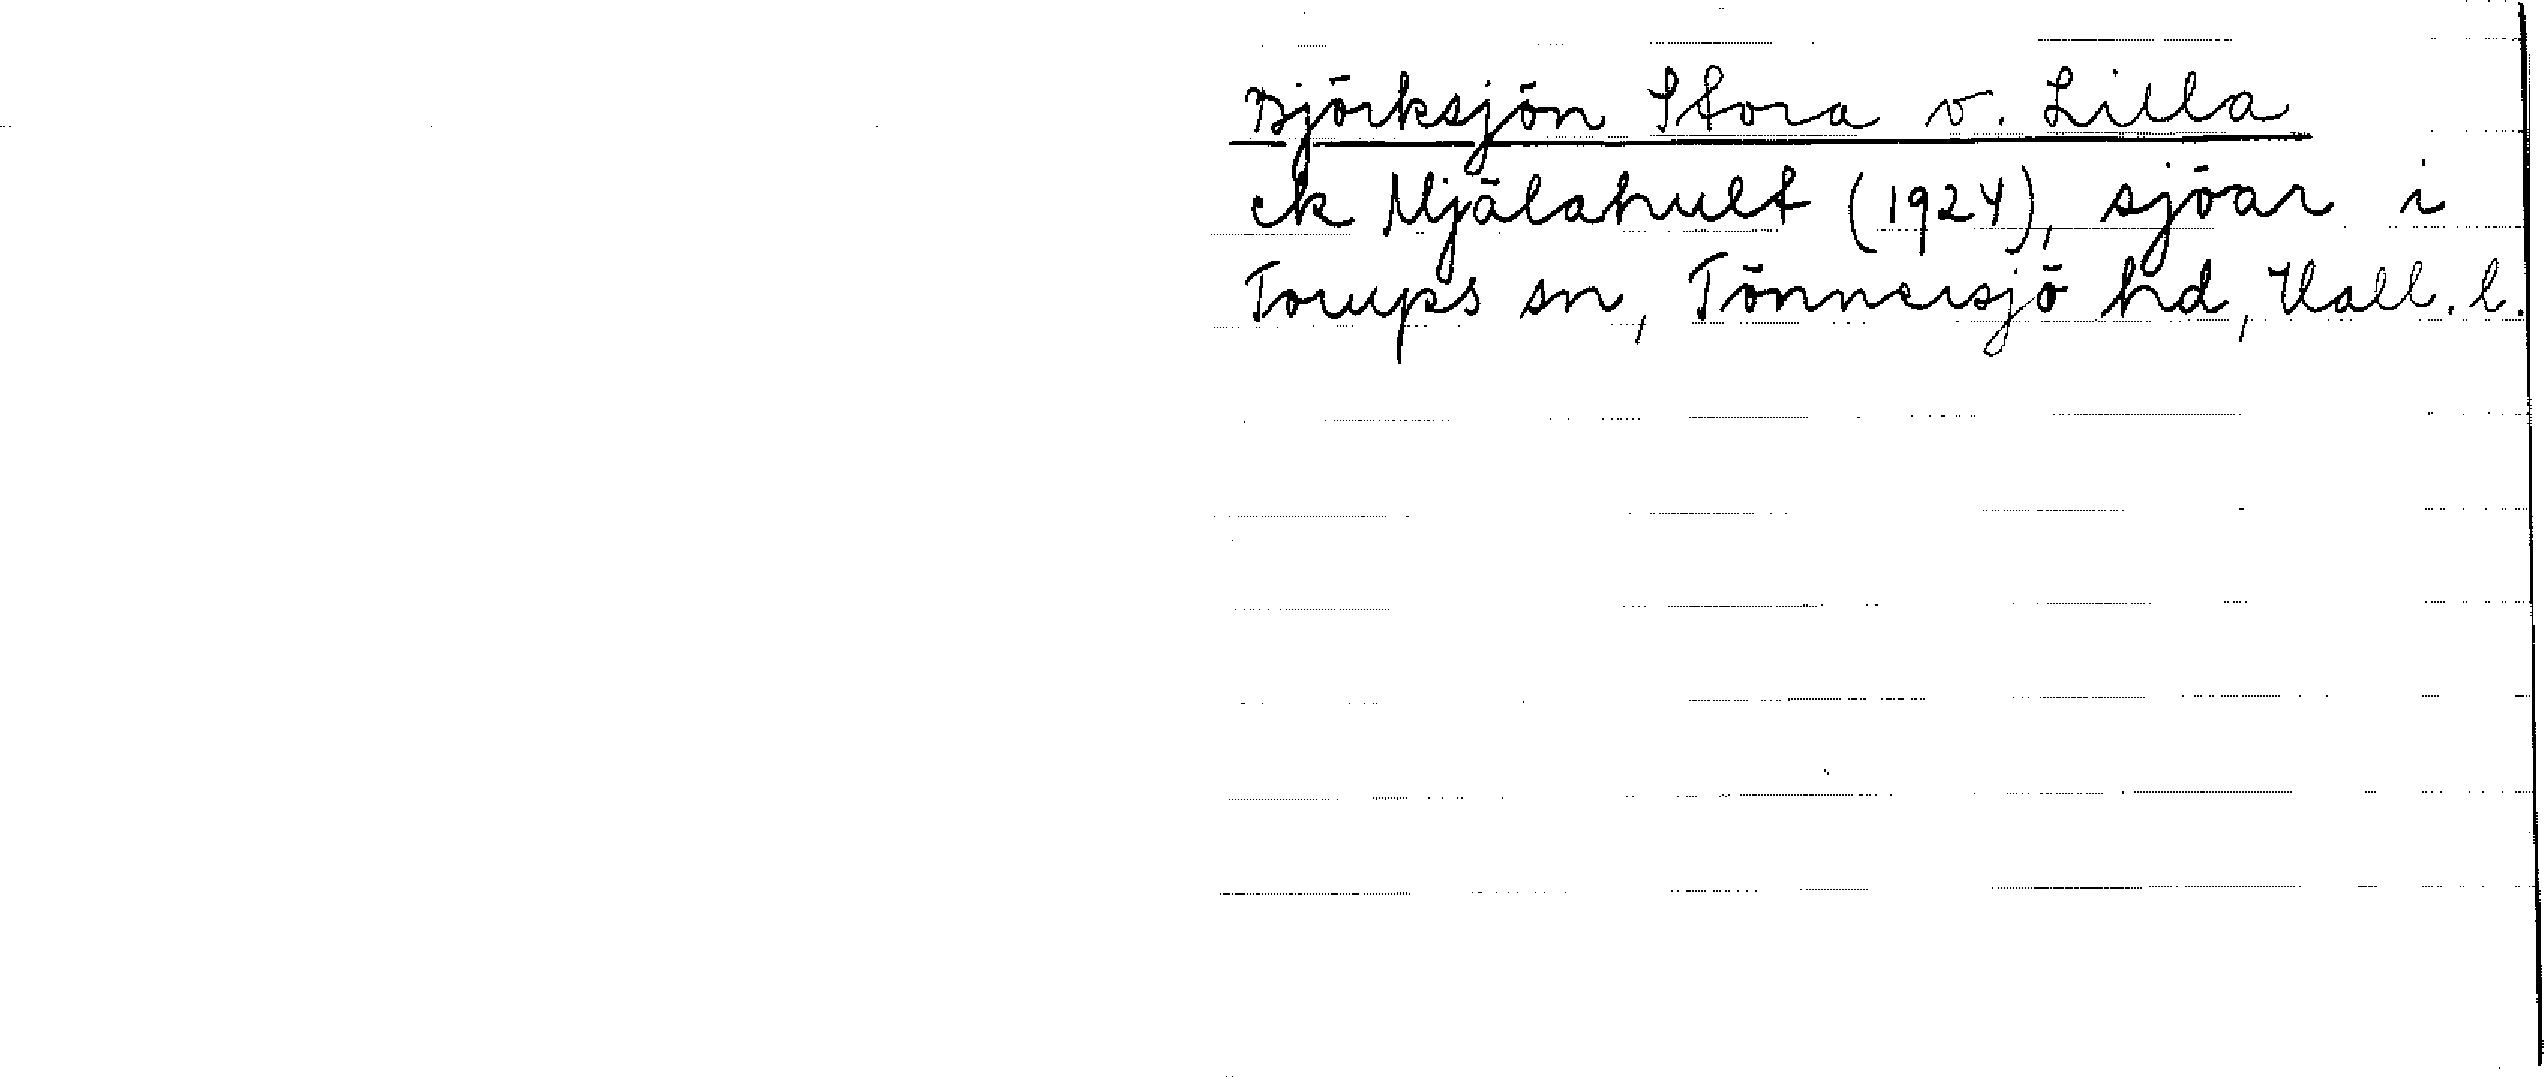 Björksjön Stora o. Lilla
ek Mjälahult (1924), sjöar i
Torups sn, Tönnersjö hd, Hall. l.